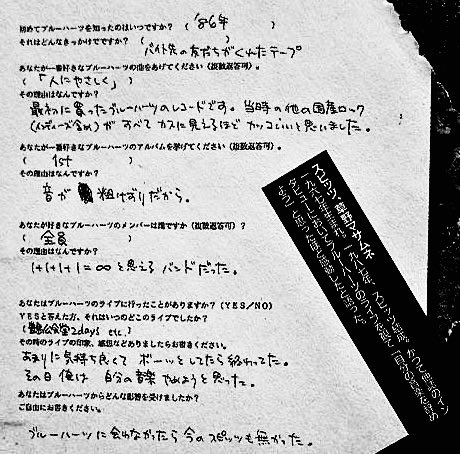 初めてブルーハーツを知ったのはいつですか？（ '86年 ）
それはどんなきっかけでですか？（ バイト先の友だちがくれたテープ ）
あなたが一番好きなブルーハーツの曲をあげてください（複数返答可）。
（ 「人にやさしく」 ）
その理由はなんですか？
最初に買ったブルーハーツのレコードです。当時の他の国産ロック
（インディーズ含め）がすべてカスに見えるほどカッコいいと思いました。
あなたが一番好きなブルーハーツのアルバムを挙げてください（複数返答可）。
（ 1st ）
その理由はなんですか？
音が粗けずりだから。
あなたが好きなブルーハーツのメンバーは誰ですか（複数返答可）？
（ 全員 ）
その理由はなんですか？
1+1+1+1=∞と思えるバンドだった。
あなたはブルーハーツのライブに行ったことがありますか？（YES/NO）
YESと答えた方、それはいつのどこのライブでしたか？
公会堂2days etc.）
その時のライブの印象、感想などありましたらお書きください。
あまりに気持ち良くてボーッとしてたら終わってた。
その日俺は自分の音楽やめようと思った。
あなたはブルーハーツからどんな影響を受けましたか？
ご自由にお書きください。
ブルーハーツに会わなかったら今のスピッツも無かった。
スピッツ、草野マサムネ
一九六七年生まれ。一九八七年、スピッツ結成。かつて他誌のイン
タビューにおいてブルーハーツのライブを観て「自分の音楽を辞め
ようと思った程感動した」と語った。